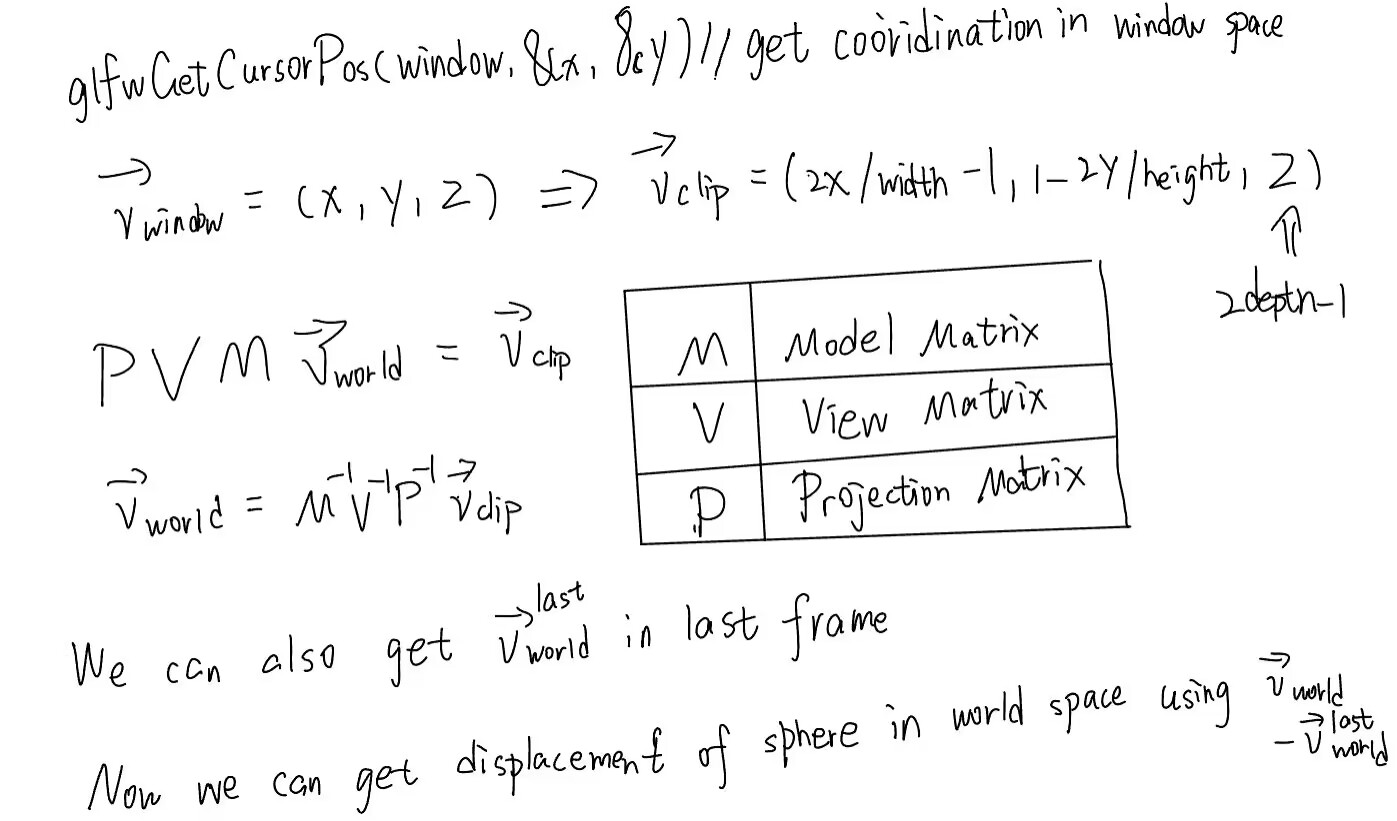 glfwGetCursorPos(window, &x, &y)// get cooridination in window space
v⃗window = (x, y, z) => v⃗clip = (2x/width -1, 1-2y/height, z)
⇑
2depth-1
PVM v⃗world = v⃗clip
M Model Matrix
V View Matrix
P Projection Matrix
v⃗world = M⁻¹V⁻¹P⁻¹ v⃗clip
We can also get v⃗world^last in last frame
Now we can get displacement of sphere in world space using v⃗world
- v⃗world^last